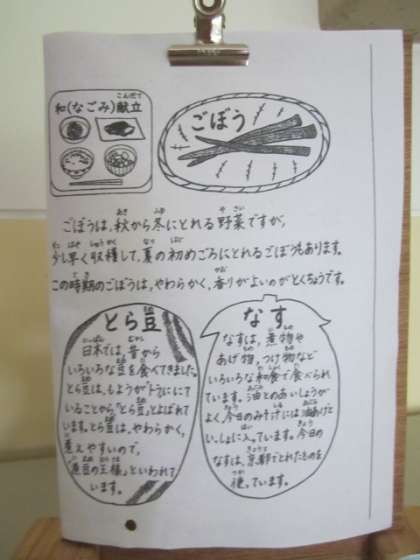 和(なごみ)献立
ごぼう
ごぼうは、秋から冬にとれる野菜ですが、
少し早く収穫して、夏の初めごろにとれるごぼうもあります。
この時期のごぼうは、やわらかく、香りがよいのがとくちょうです。
とら豆
日本では、昔から
いろいろな豆を食べてきました。
とら豆は、もようが「トラ」ににて
いることから"とら豆"とよばれて
います。とら豆は、やわらかく、
煮えやすいので、
「煮豆の王様」といわれて
います。
なす
なすは、煮物や
あげ物、つけ物など
いろいろな和食で食べられ
ています。油とのあいしょうが
よく、今日のみそ汁には油あげと
いっしょに入っています。今日の
なすは、京都でとれたものを
使っています。